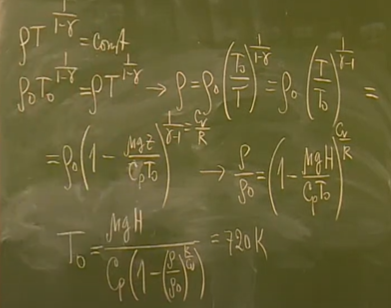 ρT^{1/(1-γ)} = const
ρ₀T₀^{1/(1-γ)} = ρT^{1/(1-γ)} → ρ = ρ₀(T₀/T)^{1/(1-γ)} = ρ₀(T/T₀)^{1/(γ-1)} =
= ρ₀(1 - μgz/(C_pT₀))^{1/(γ-1) = C_v/R} → ρ/ρ₀ = (1 - μgH/(C_pT₀))^{C_v/R}
T₀ = μgH/(C_p(1 - (ρ/ρ₀)^{R/C_v})) = 720K